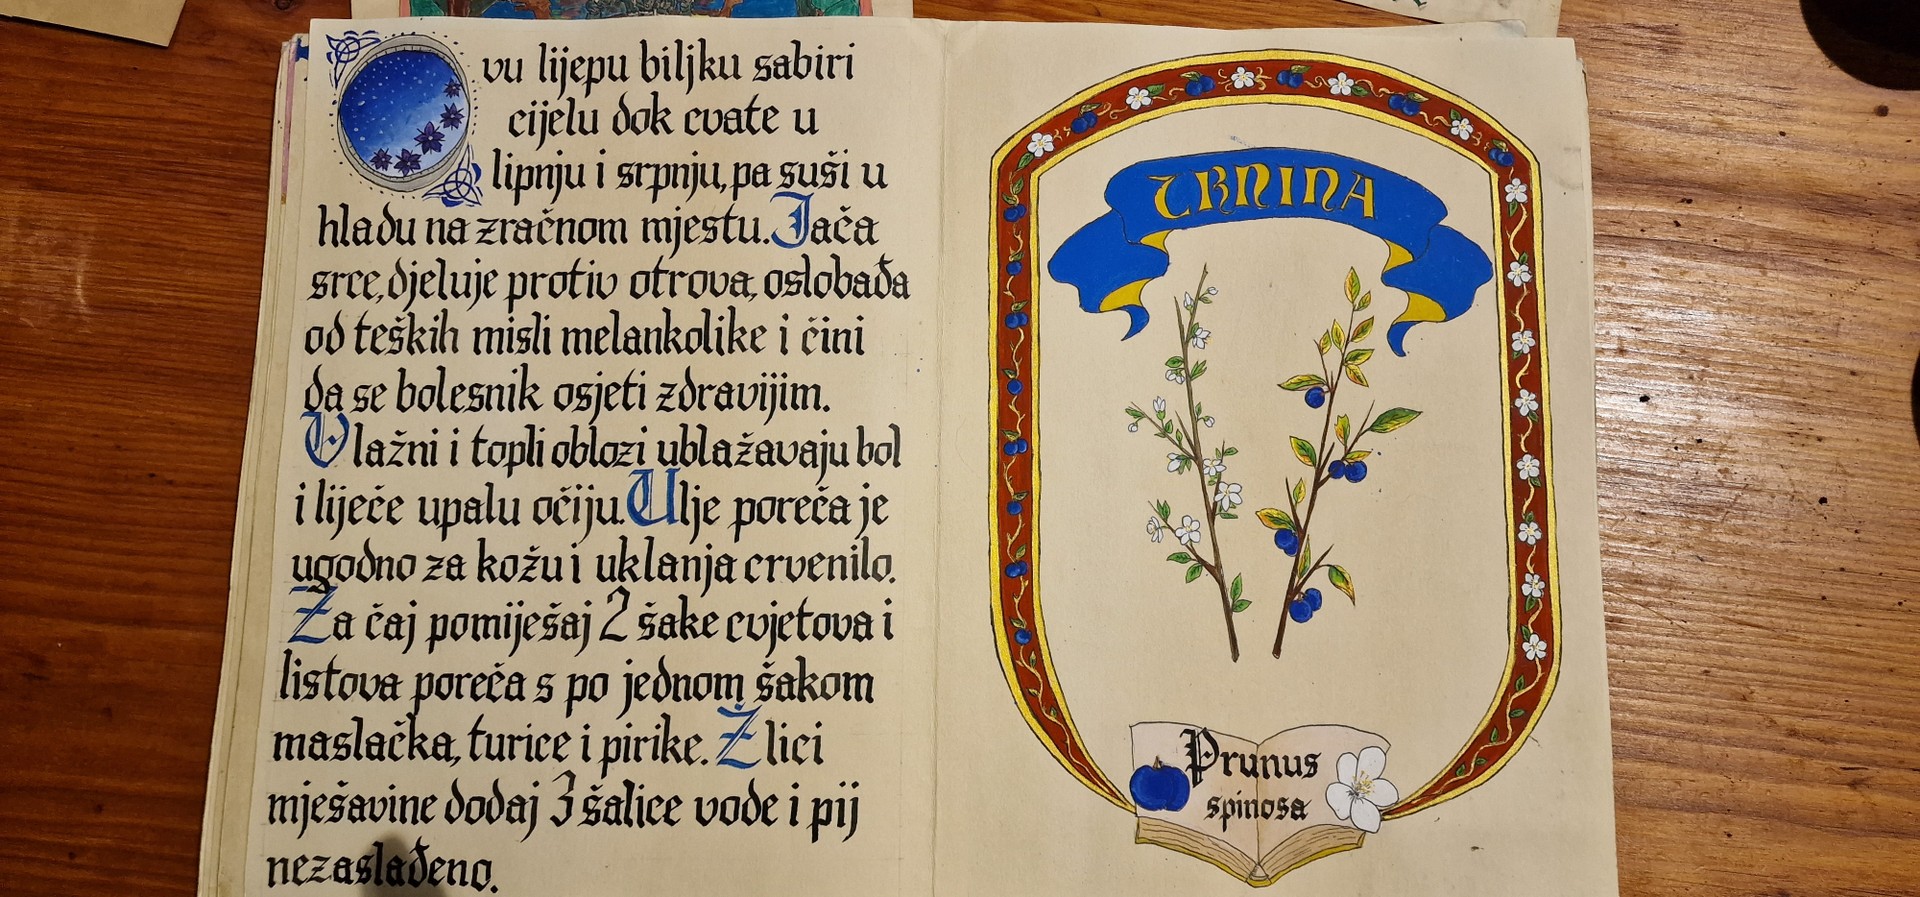 Ovu lijepu biljku sabiri
cijelu dok cvate u
lipnju i srpnju, pa suši u
hladu na zračnom mjestu. Jača
srce, djeluje protiv otrova, oslobađa
od teških misli melankolike i čini
da se bolesnik osjeti zdravijim.
Vlažni i topli oblozi ublažavaju bol
i liječe upalu očiju. Ulje poreča je
ugodno za kožu i uklanja crvenilo.
Za čaj pomiješaj 2 šake cvjetova i
listova poreča s po jednom šakom
maslačka, turice i pirike. Žlici
mješavine dodaj 3 šalice vode i pij
nezaslađeno.
TRNINA
Prunus
spinosa